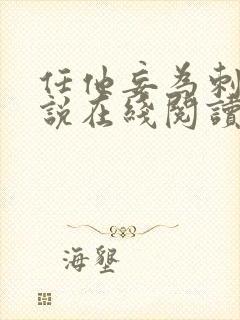 任他妄为刺
說在綫閱讀
海墾